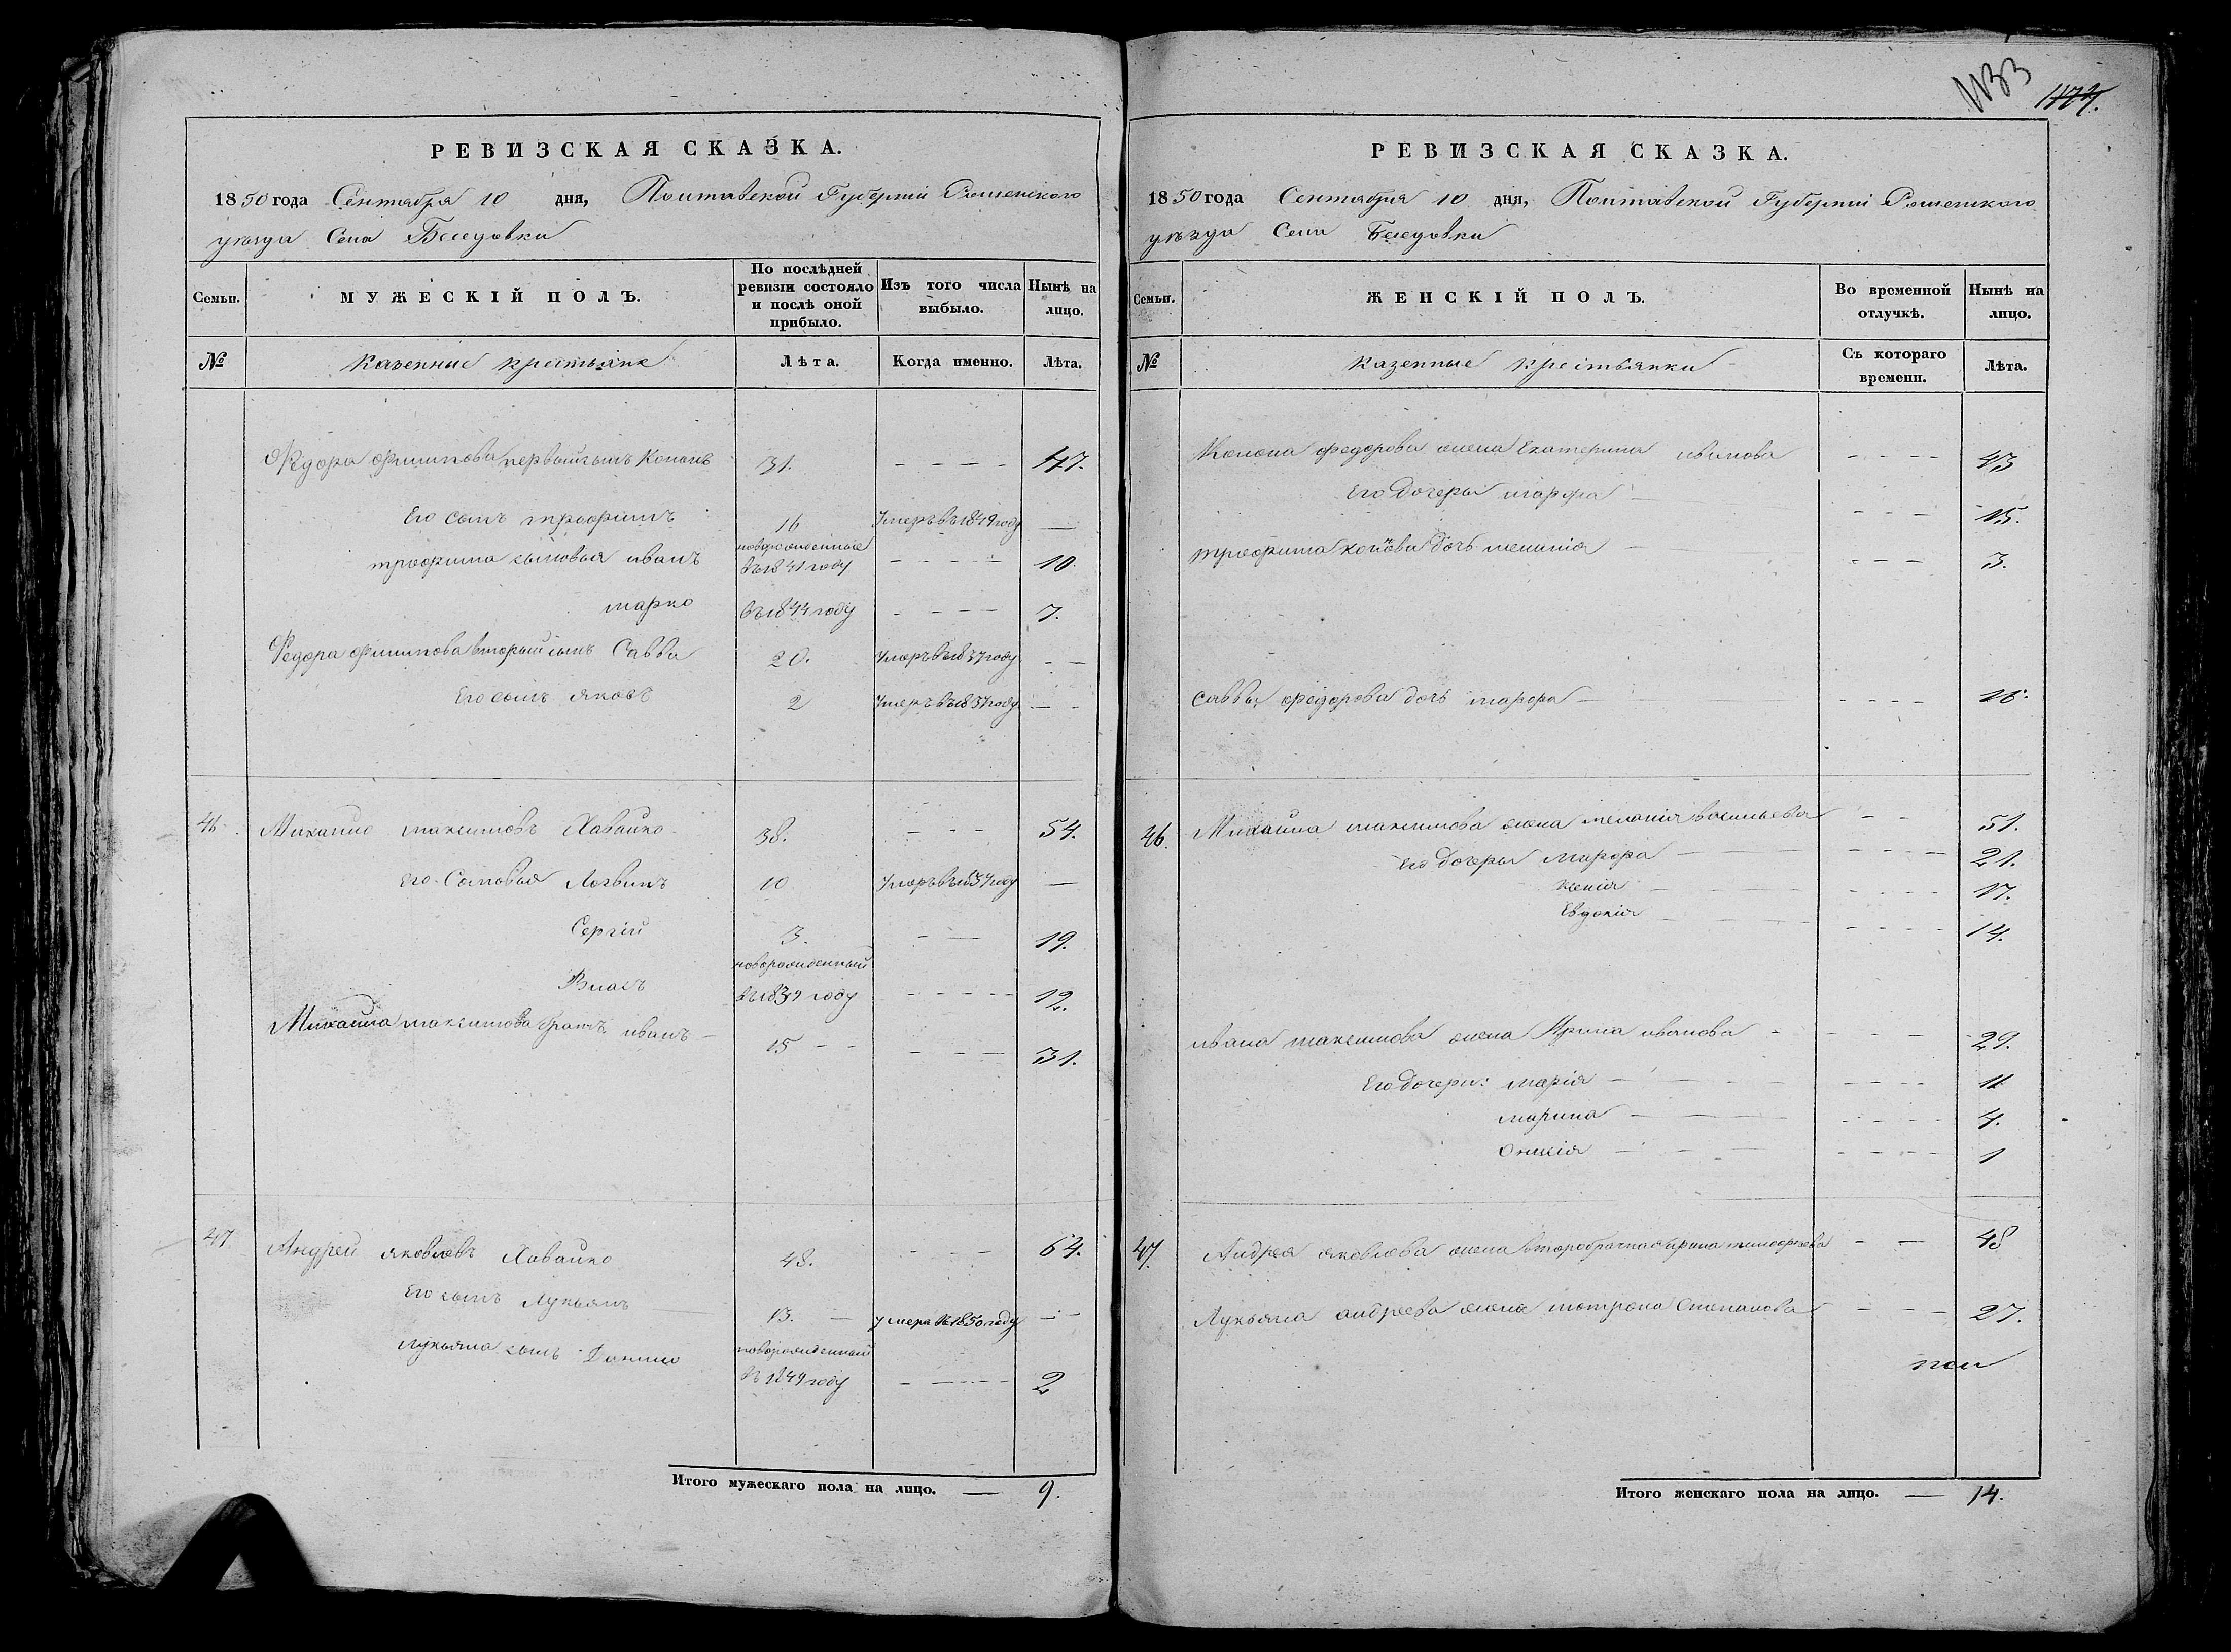 1133 1127.
РЕВИЗСКАЯ СКАЗКА.
1850 года Сентября 10 дня, Полтавской Губерніи Роменского
уѣзда Села Беседовки
Семьи. МУЖЕСКІЙ ПОЛЪ. По послѣдней ревизіи состояло и послѣ оной прибыло. Изъ того числа выбыло. Нынѣ на лицо.
№ Казенные крестьяне Лѣта. Когда именно. Лѣта.
Федора филипова первый сынъ Кононъ 31. - - - - 47.
Его сынъ трофимъ 16 Умеръ въ 1849 году —
трофима сыновья иванъ новорожденные въ 1841 году - - - - 10.
марко въ 1844 году - - - - 7.
Федора филипова вторый сынъ Савва 20. Умеръ въ 1837 году - -
Его сынъ яковъ 2 Умеръ въ 1837 году — -
46. Михаило максимовъ Хавайко 38. - - - 54.
Его Сыновья Логвинъ 10 Умеръ въ 1837 году —
Сергій 3. - — 19.
Власъ новорожденный въ 1839 году - - - - - 12.
Михайла максимова братъ иванъ — 15 - - - - - 31.
47 Андрей яковлевъ Хавайко 48. - - - 64.
Его сынъ Лукьянъ — 13. — умеръ въ 1850 году - -
лукьяна сынъ Данило новорожденный въ 1849 году - - - - 2
Итого мужескаго пола на лицо. — 9.
РЕВИЗСКАЯ СКАЗКА.
1850 года Сентября 10 дня, Полтавской Губерніи Роменского
уѣзда Села Беседовки
Семьи. ЖЕНСКІЙ ПОЛЪ. Во временной отлучкѣ. Нынѣ на лицо.
№ Казенные Крестьянки Съ котораго времени. Лѣта.
Конона федорова жена Екатерина иванова - - - - 43
Его Дочеры марфа — - - - 15.
трофима конова дочь — - - - 3.
саввы федорова дочь марфа — - - - - 18.
46. Михайла максимова жена меланія васильева - - 51.
Его Дочеры Марфа — — - - - - 21.
ксенія — — - - - - 17.
Евдокія — — - - - - 14.
ивана максимова жена Ирина иванова - - - - 29.
Его Дочери: марія — — - - - - 11
марина — — - - - - 4.
— — - - - - 1
47. Андрея яковлева жена второбрачна ирина тимофеева — — 48
Лукьяна андреева жена мотрона Степанова - - - 27.
Итого женскаго пола на лицо. — 14.